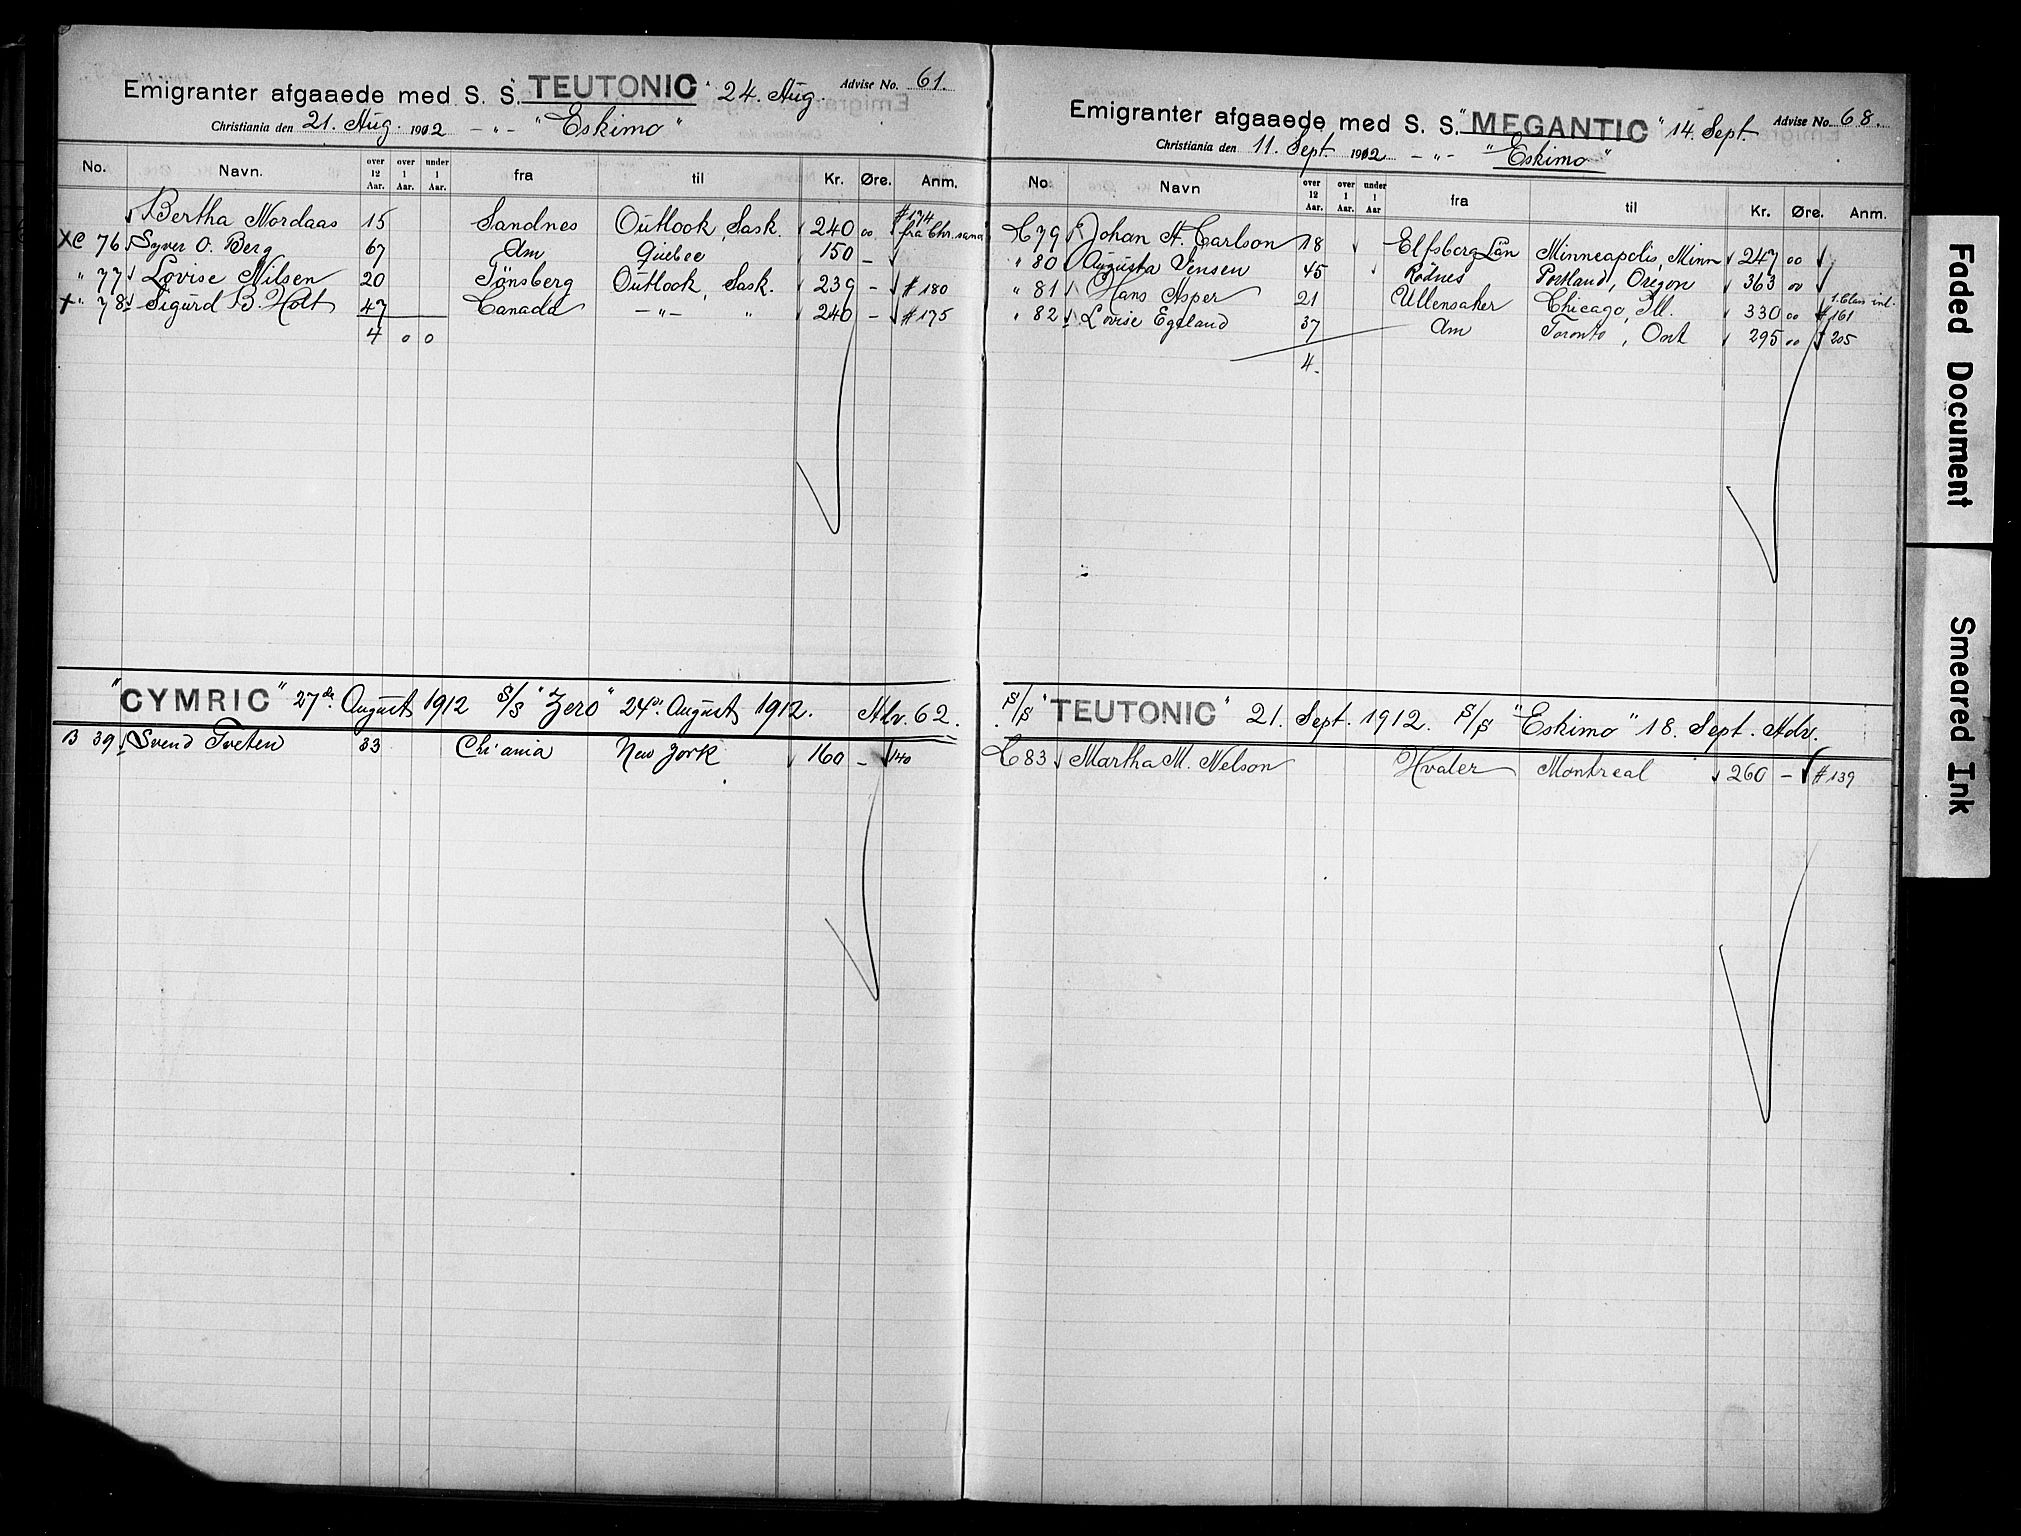 Emigranter afgaaede med S. S. "TEUTONIC" 24. Aug. Advise No. 61.
Christiania den 21. Aug. 1912 -"- "Eskimo"
No. Navn. over 12 Aar. over 1 Aar. under 1 Aar. fra til Kr. Øre. Anm.
Bertha Nordaas 15 Sandnes Outlook, Sask. 240 00 # 174 fra Chr.sand
XC 76 Syver O. Berg 67 Am Quebec 150 -
" 77 Lovise Nilsen 20 Tönsberg Outlook, Sask. 239 - # 180
+ " 78 Sigurd B. Holt 47 Canada -"- " 240 - # 175
4 0 0
"CYMRIC" 27de August 1912 S/S "Zero" 24de August 1912. Adv. 62.
B 39 Svend Tveten 33 Chr'ania New York 160 - 140
Emigranter afgaaede med S. S. "MEGANTIC" 14. Sept. Advise No. 68.
Christiania den 11. Sept. 1912 -"- "Eskimo"
No. Navn over 12 Aar. over 1 Aar. under 1 Aar fra til Kr. Øre. Anm.
C 79 Johan A. Carlson 18 Elfsborg Län Minneapolis, Minn 247 00
" 80 Augusta Jensen 45 Rödnes Portland, Oregon 363 00
" 81 Hans Asper 21 Ullensaker Chicago, Ill. 330 00 1. Class inl. # 161
" 82 Lovise Egeland 37 Am Toronto, Ont 295 00 205
4.
S/S "TEUTONIC" 21. Sept. 1912. S/S "Eskimo" 18. Sept. Adv.
C 83 Martha M. Nelson Hvaler Montreal 260 - # 139
Faded Document
Smeared Ink